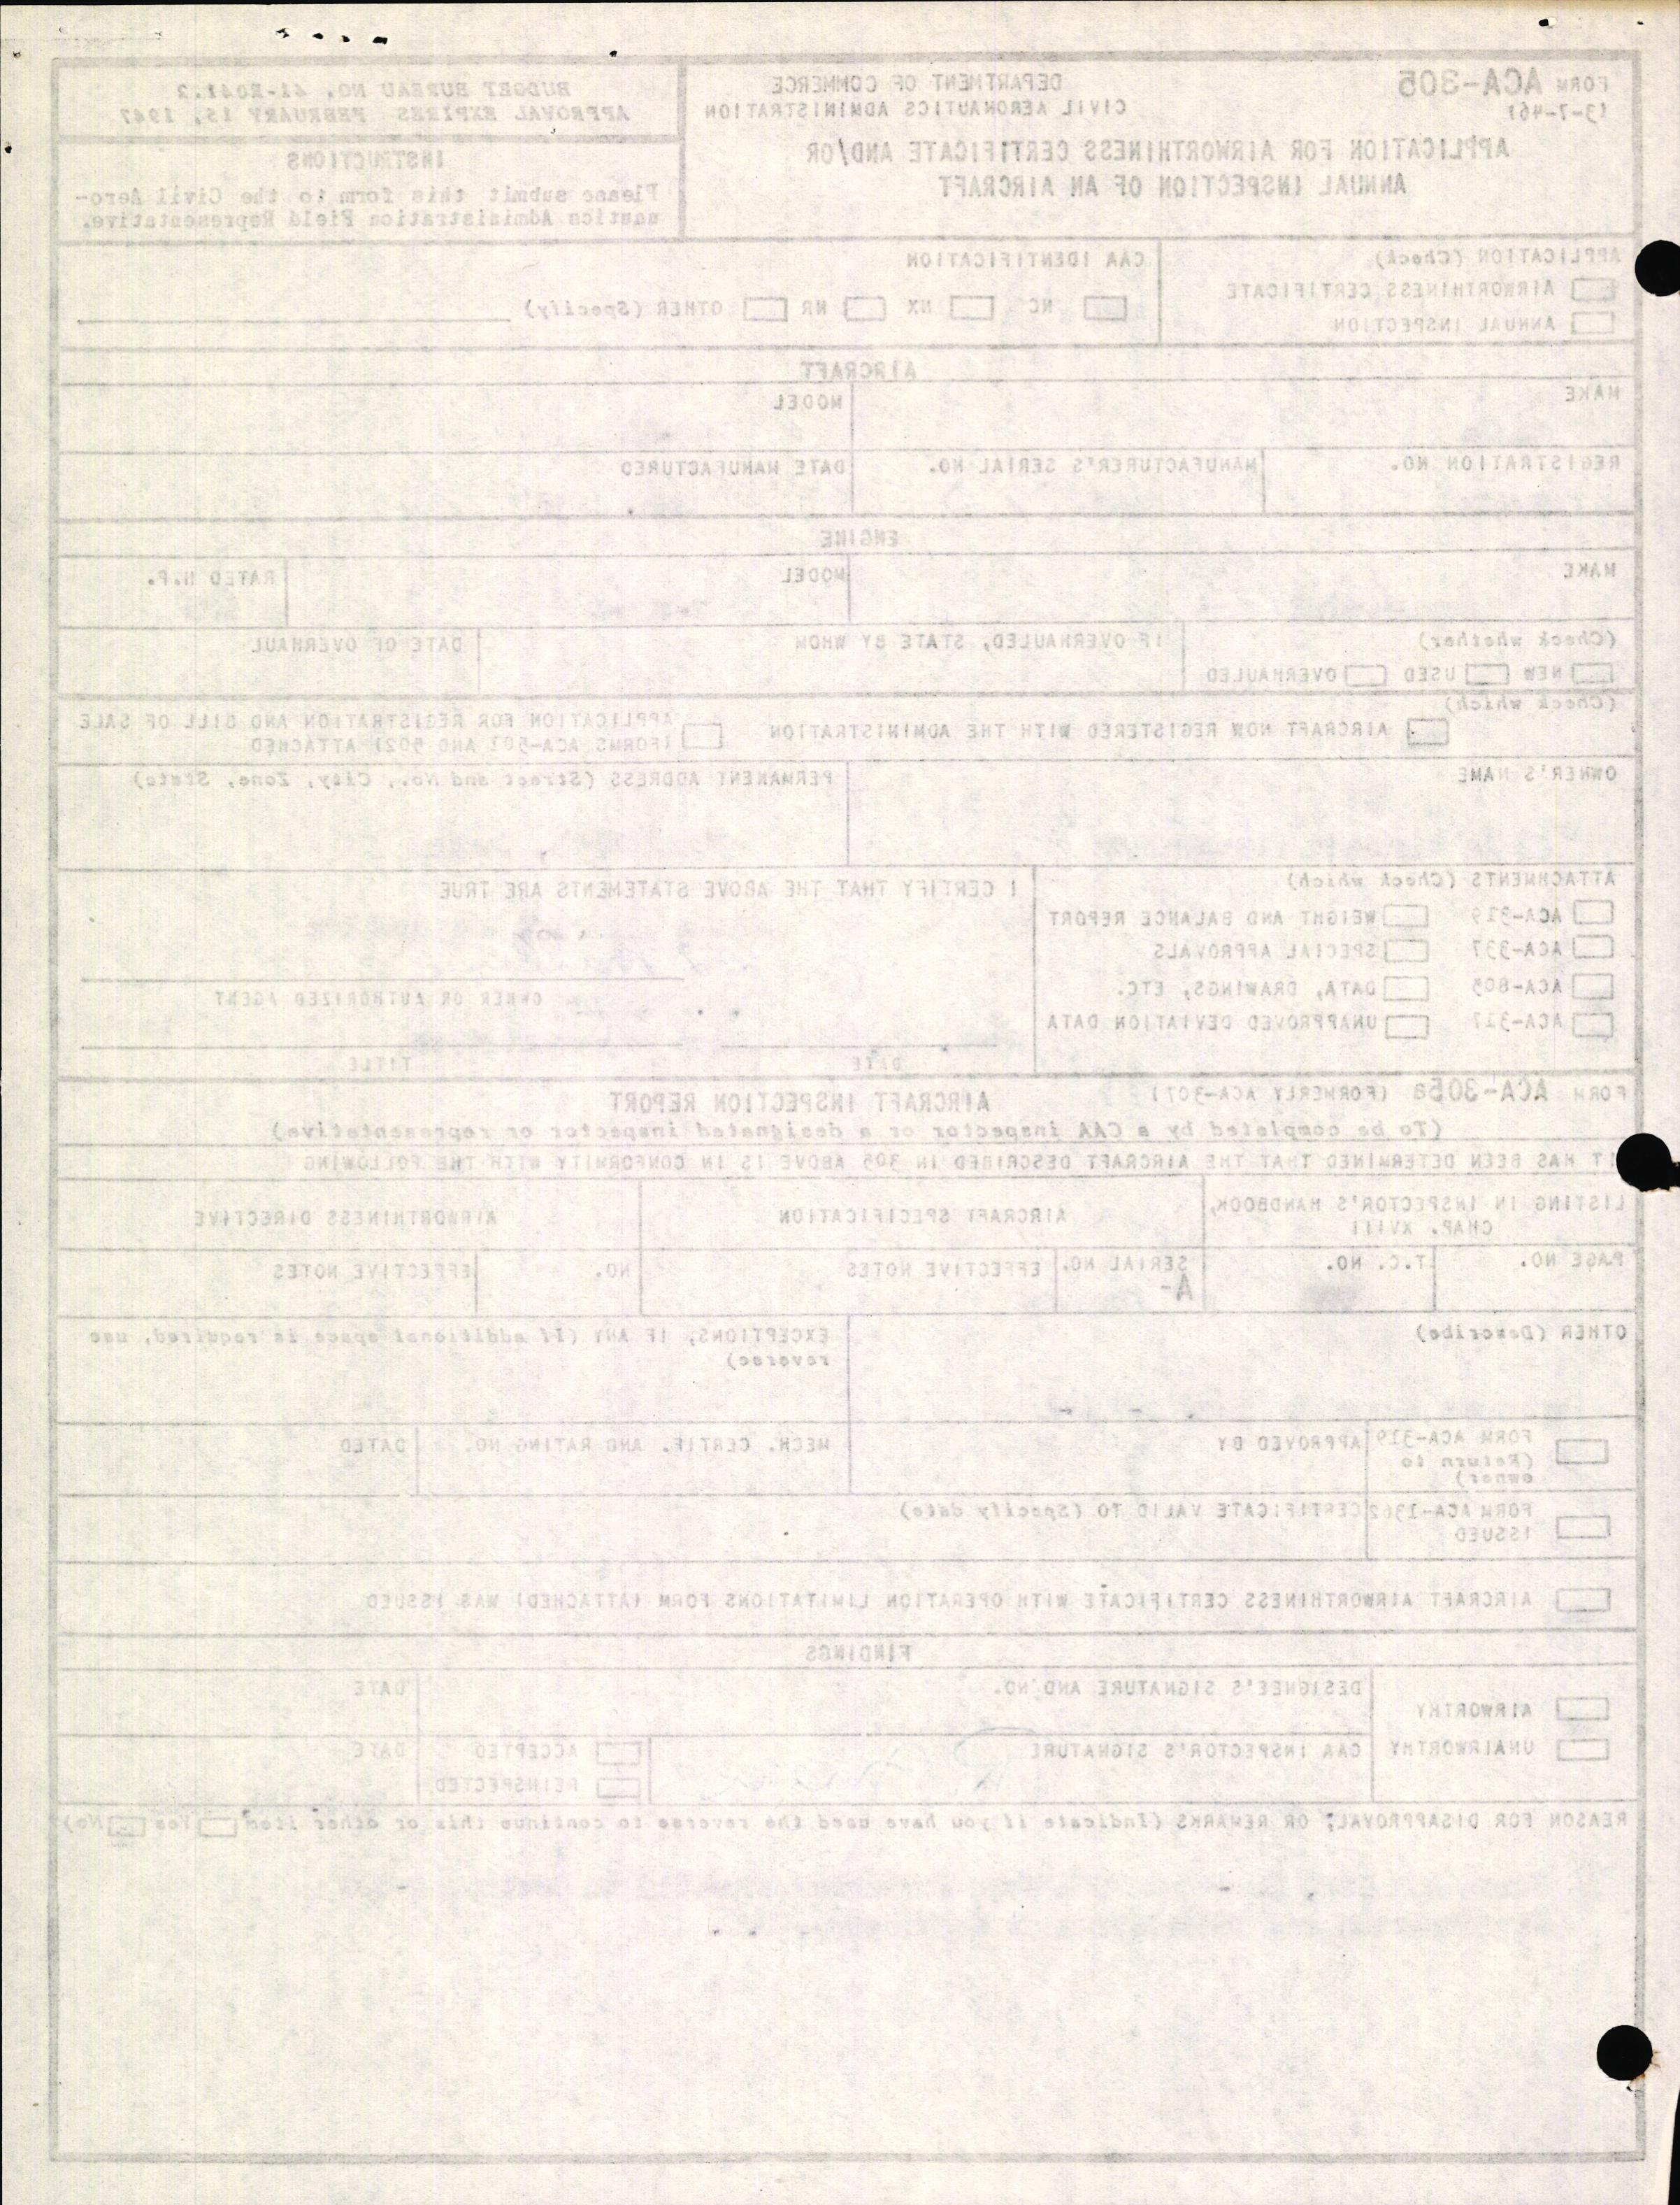 FORM ACA-305
(3-7-46)
DEPARTMENT OF COMMERCE
CIVIL AERONAUTICS ADMINISTRATION
APPLICATION FOR AIRWORTHINESS CERTIFICATE AND/OR
ANNUAL INSPECTION OF AN AIRCRAFT
BUDGET BUREAU NO. 41-R041.2
APPROVAL EXPIRES FEBRUARY 15, 1947
INSTRUCTIONS
Please submit this form to the Civil Aero-
nautics Administration Field Representative.
APPLICATION (Check)
AIRWORTHINESS CERTIFICATE
ANNUAL INSPECTION
CAA IDENTIFICATION
NC NX NR OTHER (Specify)
AIRCRAFT
MAKE
MODEL
REGISTRATION NO.
MANUFACTURER'S SERIAL NO.
DATE MANUFACTURED
ENGINE
MAKE
MODEL
RATED H.P.
(Check whether)
NEW USED OVERHAULED
IF OVERHAULED, STATE BY WHOM
DATE OF OVERHAUL
(Check which)
AIRCRAFT NOW REGISTERED WITH THE ADMINISTRATION
APPLICATION FOR REGISTRATION AND BILL OF SALE
(FORMS ACA-501 AND 502) ATTACHED
OWNER'S NAME
PERMANENT ADDRESS (Street and No., City, Zone, State)
ATTACHMENTS (Check which)
ACA-319 WEIGHT AND BALANCE REPORT
ACA-337 SPECIAL APPROVALS
ACA-805 DATA, DRAWINGS, ETC.
ACA-317 UNAPPROVED DEVIATION DATA
I CERTIFY THAT THE ABOVE STATEMENTS ARE TRUE
OWNER OR AUTHORIZED AGENT
DATE
TITLE
FORM ACA-305a (FORMERLY ACA-307)
AIRCRAFT INSPECTION REPORT
(To be completed by a CAA inspector or a designated inspector or representative)
IT HAS BEEN DETERMINED THAT THE AIRCRAFT DESCRIBED IN 305 ABOVE IS IN CONFORMITY WITH THE FOLLOWING
LISTING IN INSPECTOR'S HANDBOOK,
CHAP. XVIII
AIRCRAFT SPECIFICATION
AIRWORTHINESS DIRECTIVE
PAGE NO.
T.C. NO.
SERIAL NO.
A-
EFFECTIVE NOTES
NO.
EFFECTIVE NOTES
OTHER (Describe)
EXCEPTIONS, IF ANY (If additional space is required, use
reverse)
FORM ACA-319
(Return to
owner)
APPROVED BY
MECH. CERTIF. AND RATING NO.
DATED
FORM ACA-1362
ISSUED
CERTIFICATE VALID TO (Specify date)
AIRCRAFT AIRWORTHINESS CERTIFICATE WITH OPERATION LIMITATIONS FORM (ATTACHED) WAS ISSUED
FINDINGS
AIRWORTHY
UNAIRWORTHY
DESIGNEE'S SIGNATURE AND NO.
DATE
CAA INSPECTOR'S SIGNATURE
ACCEPTED
REINSPECTED
DATE
REASON FOR DISAPPROVAL, OR REMARKS (Indicate if you have used the reverse to continue this or other item Yes No)